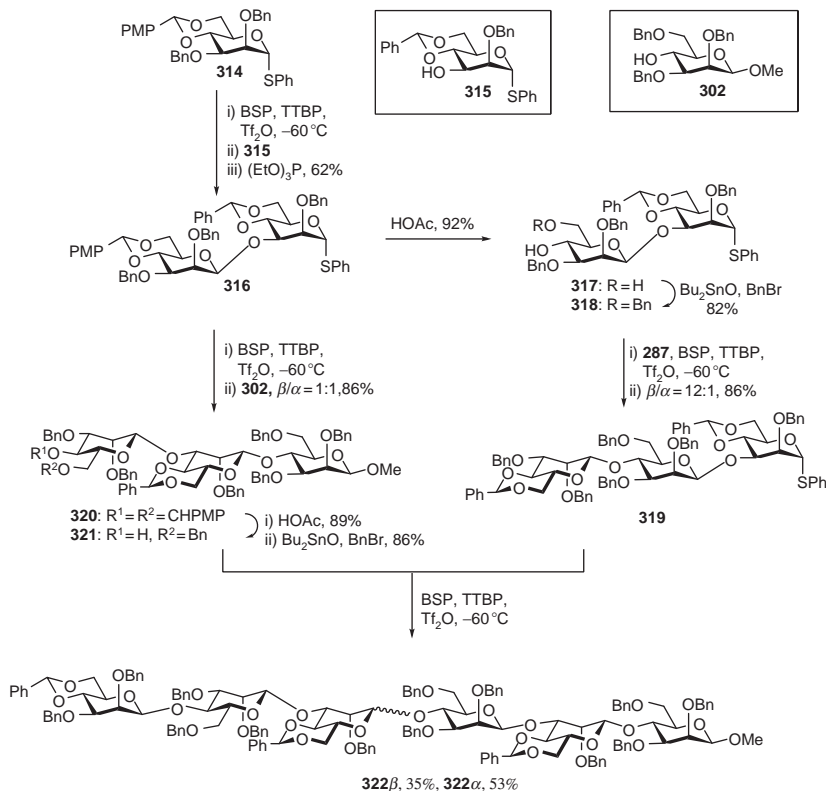 OBn
PMP
BnO
SPh
314
Ph
OBn
HO
SPh
315
BnO
OBn
HO
BnO
OMe
302
i) BSP, TTBP,
Tf₂O, −60 °C
ii) 315
iii) (EtO)₃P, 62%
OBn
Ph
OBn
PMP
BnO
SPh
316
HOAc, 92%
OBn
Ph
RO
OBn
HO
BnO
SPh
317: R=H
318: R=Bn
Bu₂SnO, BnBr
82%
i) BSP, TTBP,
Tf₂O, −60 °C
ii) 302, β/α=1:1,86%
i) 287, BSP, TTBP,
Tf₂O, −60 °C
ii) β/α=12:1, 86%
BnO
R¹O
R²O
OBn
Ph
OBn
BnO
OBn
BnO
OMe
320: R¹=R²=CHPMP
321: R¹=H, R²=Bn
i) HOAc, 89%
ii) Bu₂SnO, BnBr, 86%
OBn
Ph
BnO
OBn
BnO
BnO
Ph
OBn
SPh
319
BSP, TTBP,
Tf₂O, −60 °C
Ph
OBn
BnO
BnO
BnO
OBn
Ph
OBn
BnO
OBn
BnO
Ph
OBn
BnO
OBn
BnO
OMe
322β, 35%, 322α, 53%